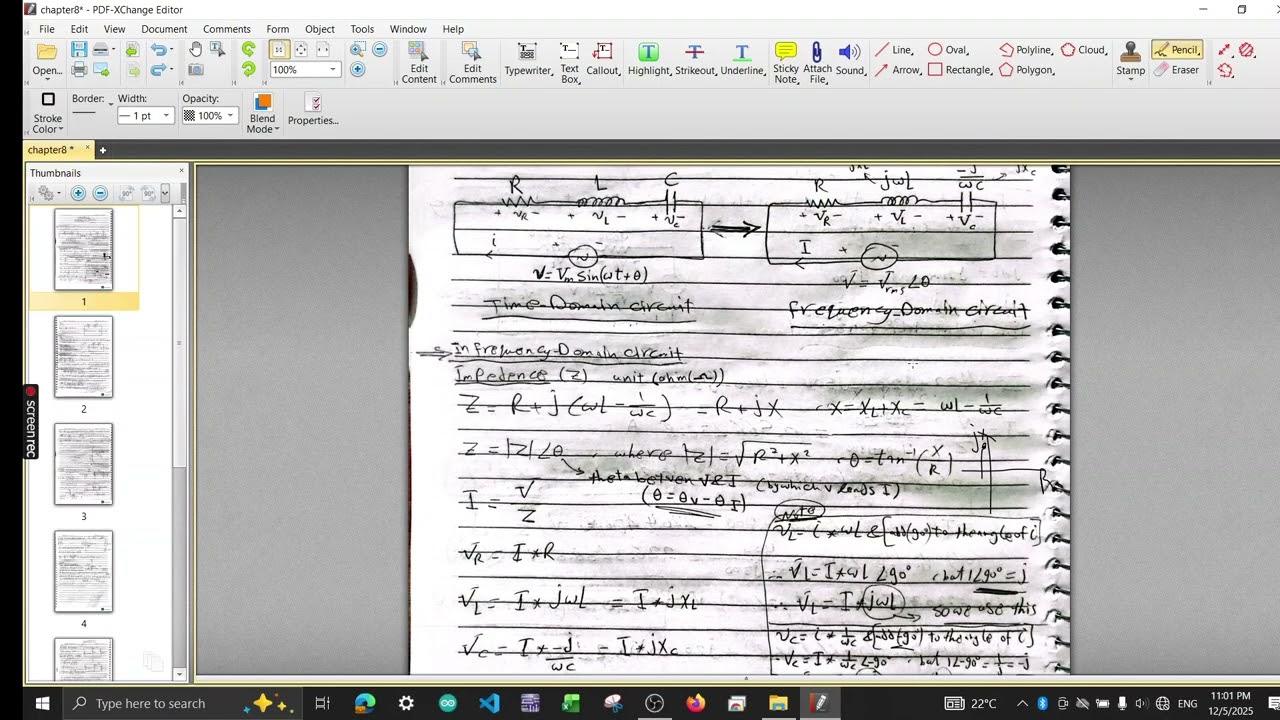 chapter8* - PDF-XChange Editor
File Edit View Document Comments Form Object Tools Window Help
Open... 100% Edit Content Edit Comments Typewriter, Text Box, Callout, Highlight, Strikeout, Underline, Sticky Note, Attach File, Sound, Line, Arrow, Oval, Rectangle, Polyline, Polygon, Cloud, Stamp Pencil Eraser
Stroke Color Border: Width: 1 pt Opacity: 100% Blend Mode Properties...
chapter8 *
Thumbnails
1
2
3
4
screenrec
R L C R jωL -j/ωC jXc
+ VR - + VL - + Vc - + VR - + VL - + Vc -
i + - I +
V = Vm sin(ωt+θ) V = Vrms∠θ
Time-Domain circuit Frequency-Domain circuit
In frequency-Domain circuit
Impedance (Z) unit (ohm(Ω))
Z = R + j (ωL - 1/ωC) = R + jX X = XL + Xc = ωL - 1/ωC
Z = |Z|∠θ , where |Z| = √R²+X² , θ = tan⁻¹(X/R) jX R
theta between V & I (by which V leads I)
I = V/Z (θ = θv - θI)
Note
VL = i * ωL & [add(90°) to the angle of i]
VR = I * R
∴ VL = I * ωL ∠90° but 1∠90° = j
VL = I * jωL = I * jXL ∴ VL = I * jωL so we use this
Vc = i * 1/ωC & [-90° to the angle of i]
Vc = I * -j/ωC = I * jXc
Vc = I * 1/ωC ∠-90 but ∠-90 = 1/j = -j
Type here to search 22°C ENG 11:01 PM 12/5/2025